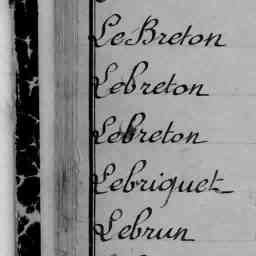 LeBreton
Lebreton
Lebreton
Lebriquet
Lebrun